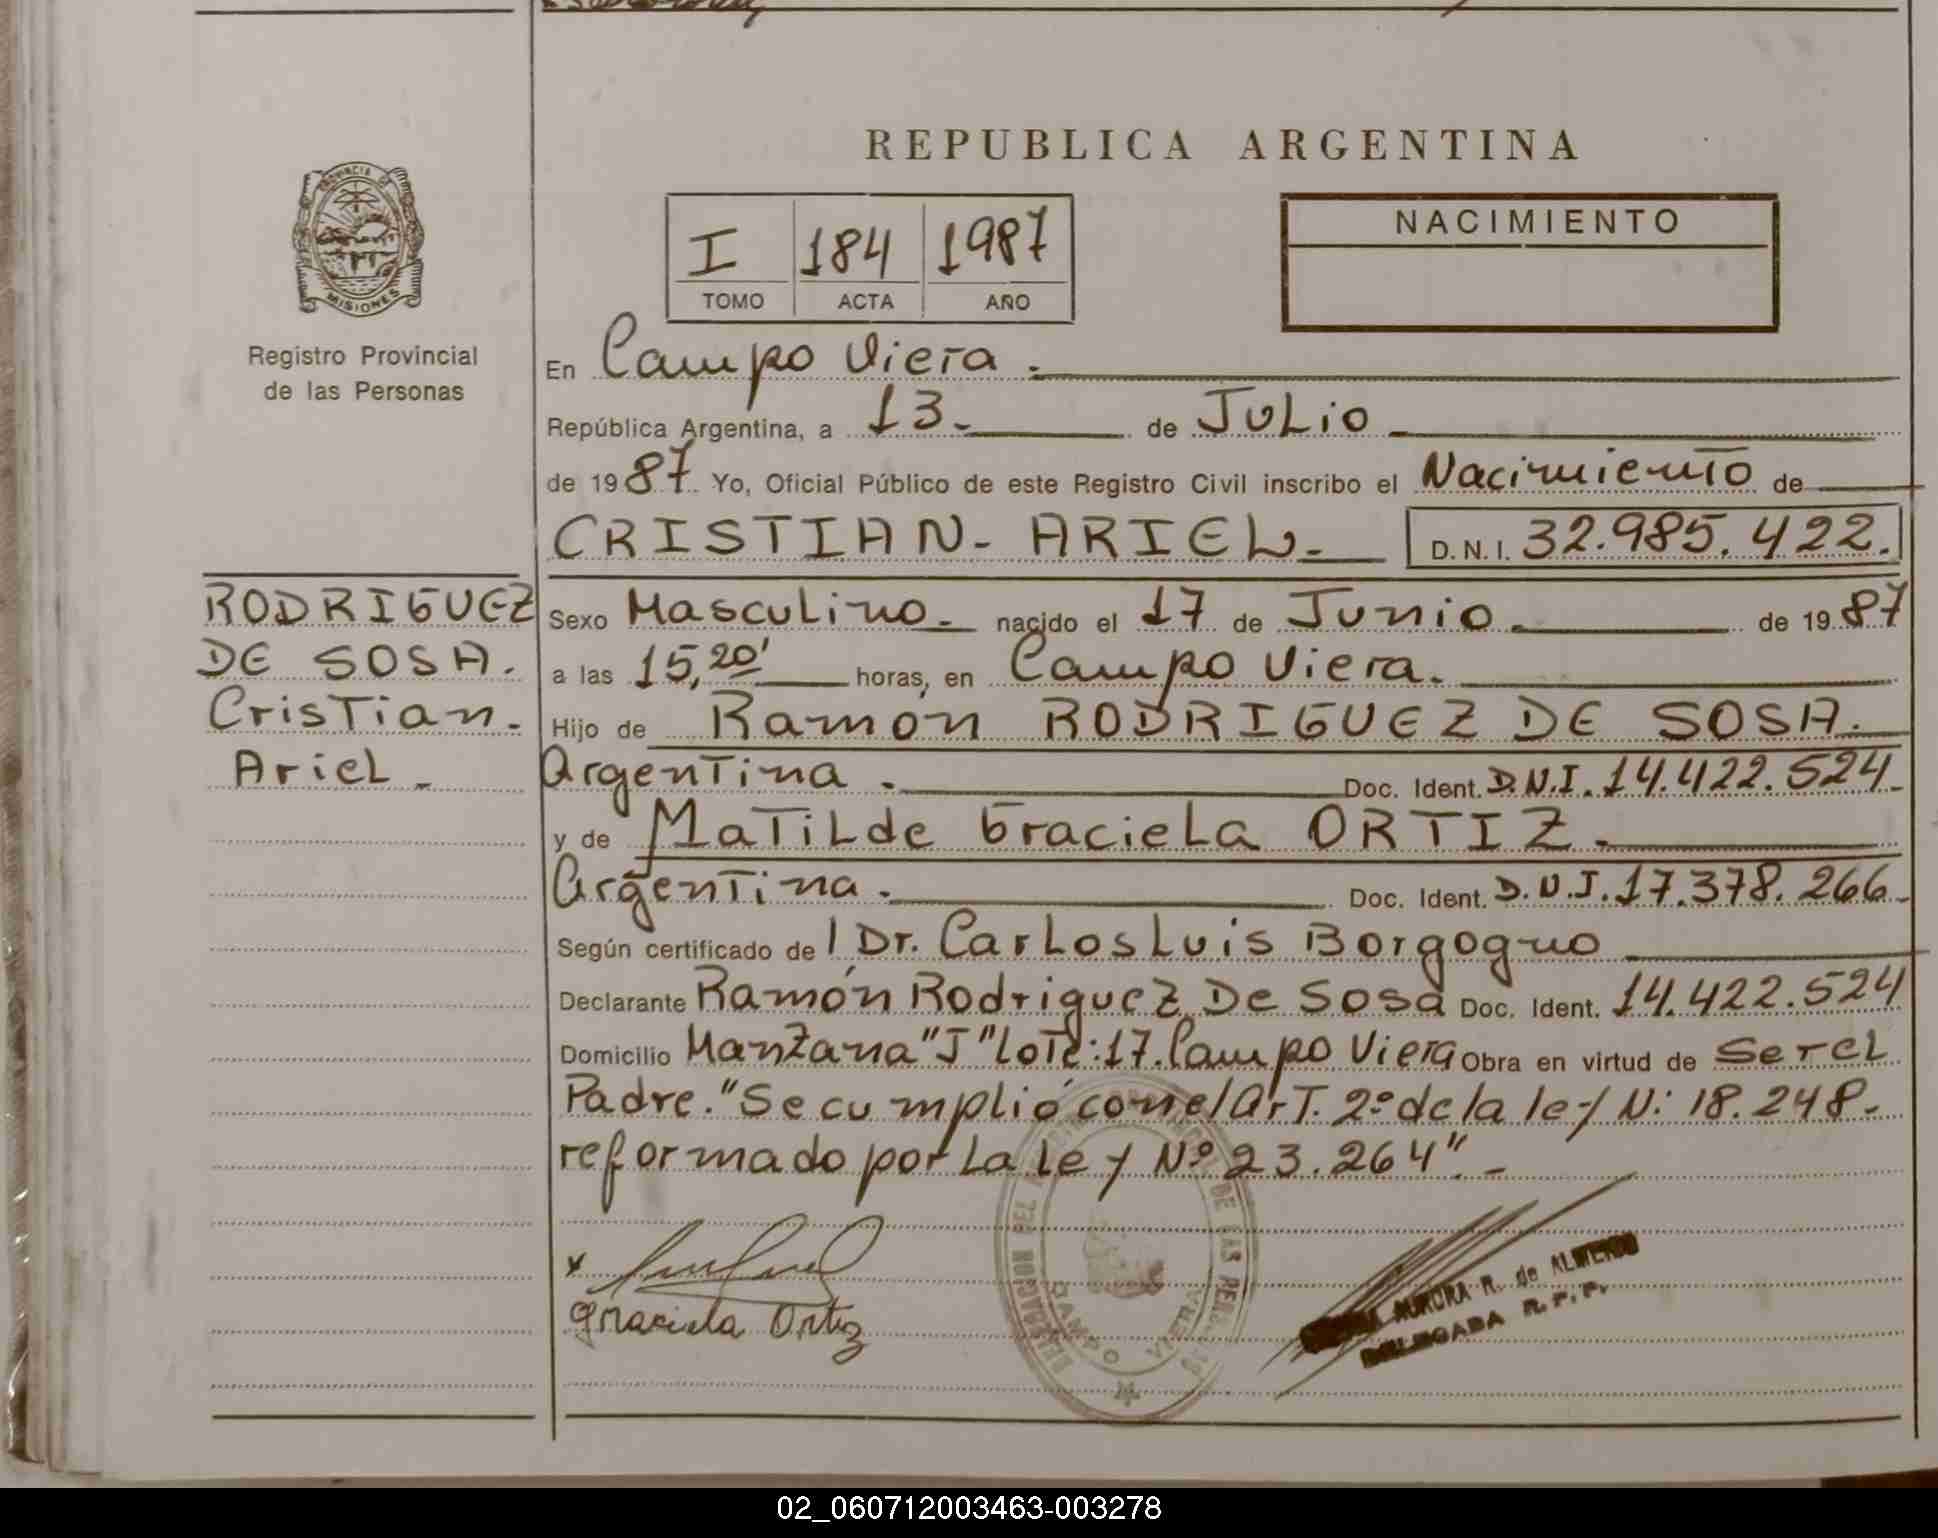 REPUBLICA ARGENTINA
PROVINCIA DE
MISIONES
Registro Provincial
de las Personas
I 184 1987
TOMO ACTA AÑO
NACIMIENTO
En Campo Viera.
República Argentina, a 13.- de JULio
de 1987. Yo, Oficial Público de este Registro Civil inscribo el Nacimiento de
CRISTIAN- ARIEL.- D.N.I. 32.985.422.
RODRIGUEZ
DE SOSA.
Cristian.
Ariel -
Sexo Masculino.- nacido el 17 de Junio.- de 1987
a las 15,20' horas, en Campo Viera.
Hijo de Ramón RODRIGUEZ DE SOSA.
Argentina. Doc. Ident. D.N.I. 14.422.524-
y de Matilde Graciela ORTIZ.
Argentina. Doc. Ident. D.N.I. 17.378.266-
Según certificado de l Dr. Carlos Luis Borgogno
Declarante Ramón Rodriguez De Sosa Doc. Ident. 14.422.524
Domicilio Manzana "J" Lote:17. Campo Viera Obra en virtud de ser el
Padre. "Se cumplió con el Art. 2º de la ley N: 18.248-
reformado por la ley Nº 23.264".-
Graciela Ortiz
DELEGACION DEL REGISTRO DE LAS PERSONAS
CAMPO VIERA
AURORA R. de ALMEIDA
DELEGADA R.P.P.
02_060712003463-003278